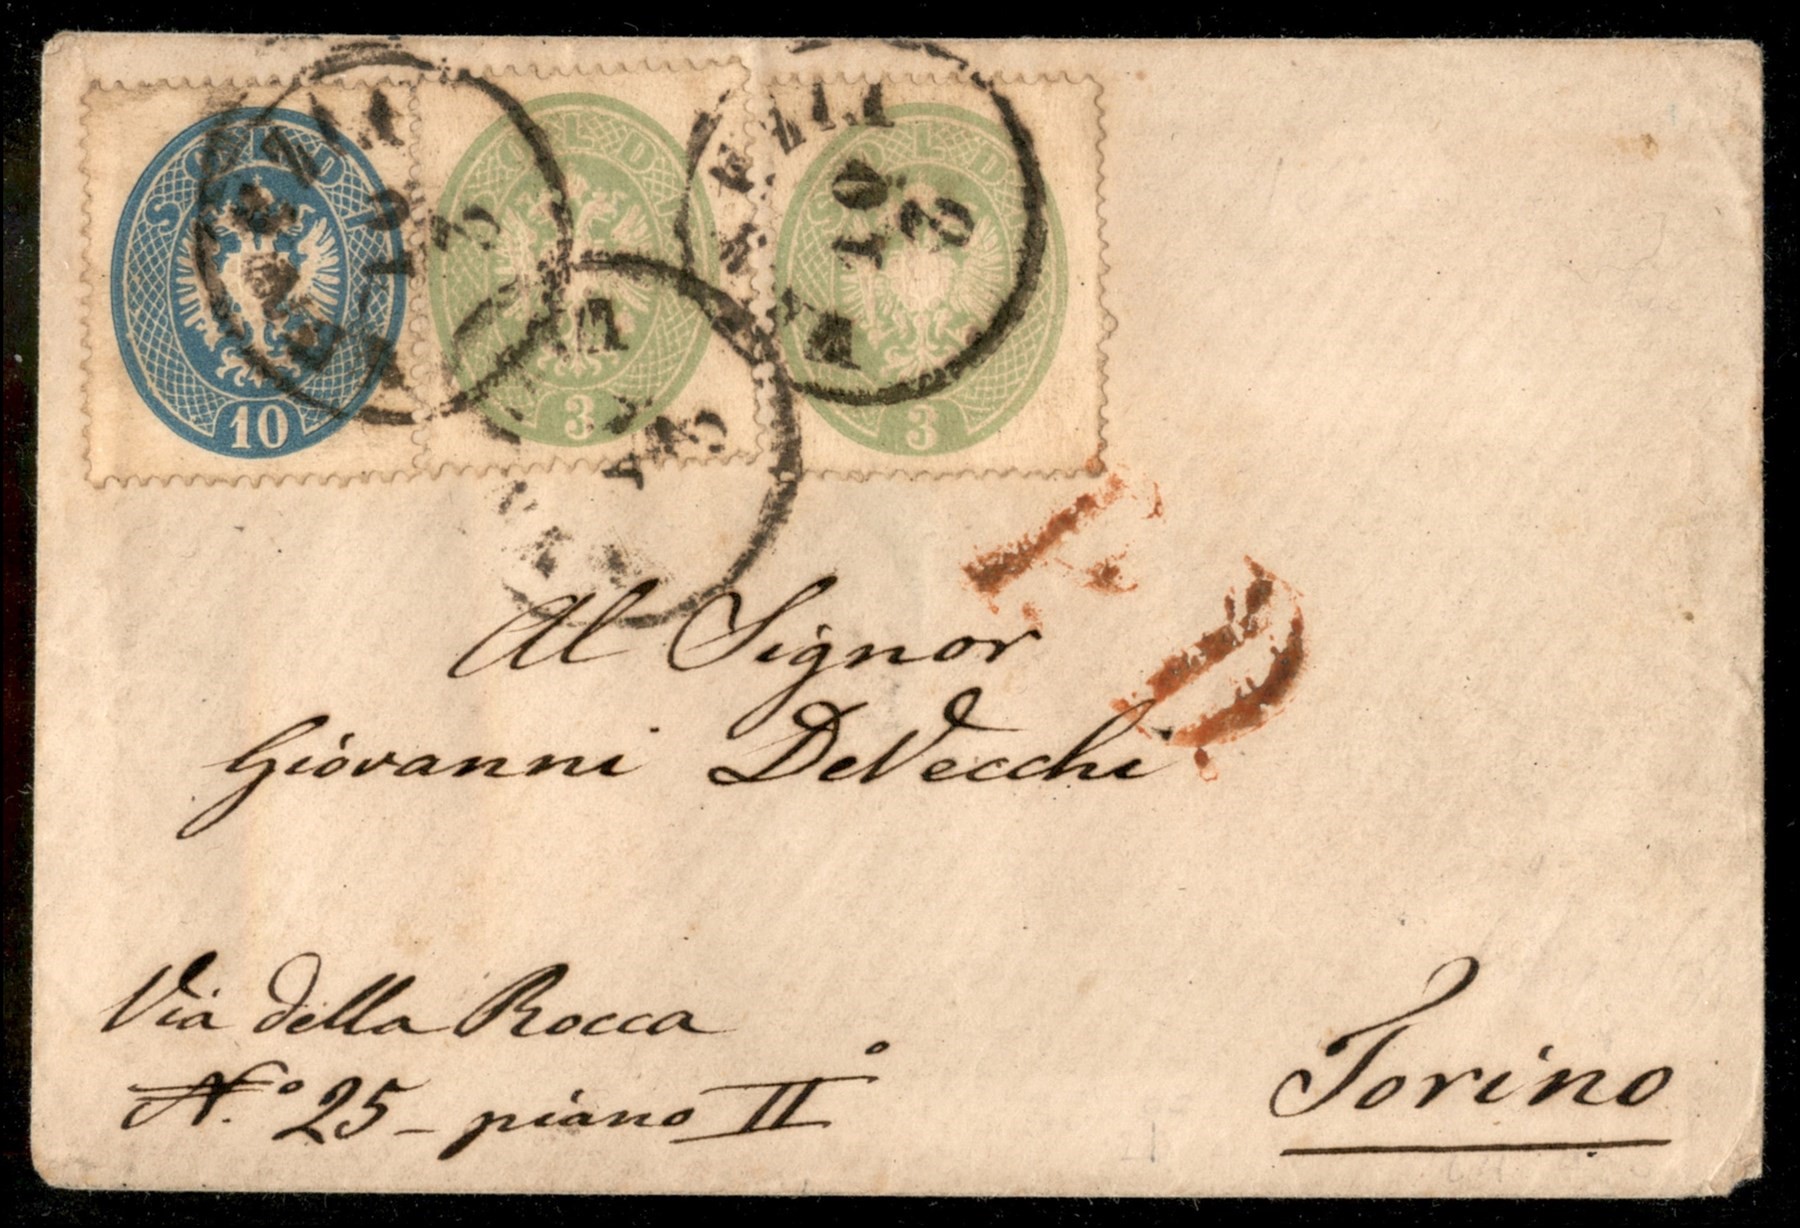 SOLDI SOLDI SOLDI
10 3 3
Al Signor
Giovanni DeVecchi
Via della Rocca
N.º 25 - piano IIº
Torino